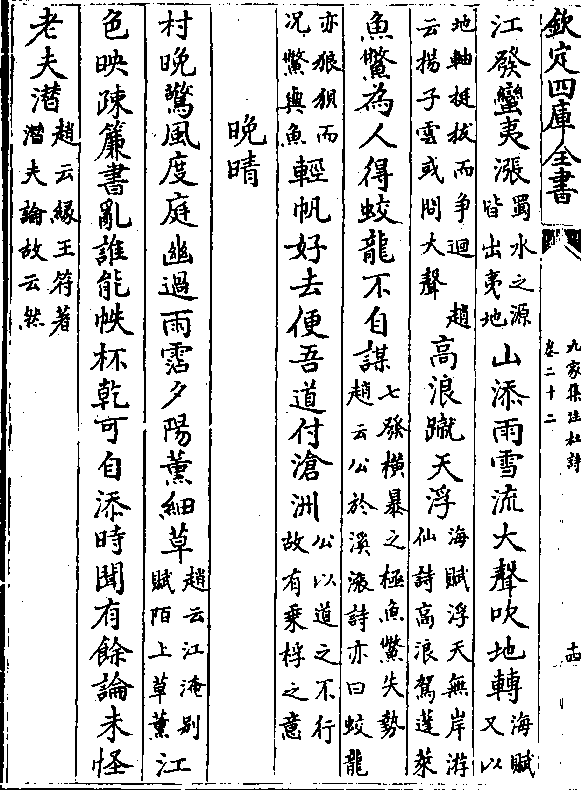 欽定四庫全書
九家集注杜詩
卷二十二
十四
江發蠻夷漲蜀水之源皆出夷地山添雨雪流大聲吹地轉海賦又以
地軸挺拔而争迴 趙云揚子雲或問大聲高浪蹴天浮海賦浮天無岸游仙詩高浪駕蓬萊
魚鼈為人得蛟龍不自謀七發横暴之極魚鼈失勢趙云公於溪漲詩亦曰蛟龍
亦狼狽而况鼈與魚輕帆好去便吾道付滄洲公以道之不行故有乗桴之意
晚晴
村晚驚風度庭幽過雨霑夕陽薰細草趙云江淹别賦陌上草薰江
色映疎簾書亂誰能帙杯乾可自添時聞有餘論未怪
老夫潜趙云縁王符著潜夫論故云然